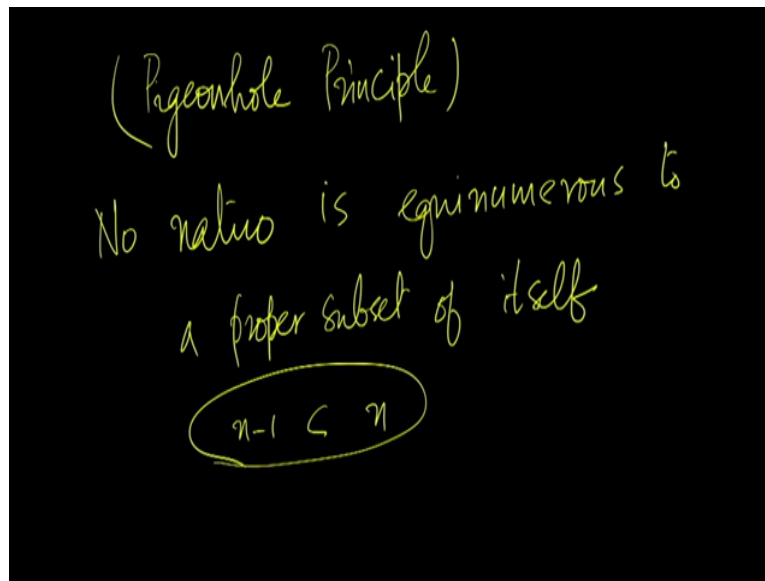 (Pigeonhole Principle)
No natno is equinumerous to
a proper subset of itself
n-1 ⊂ n